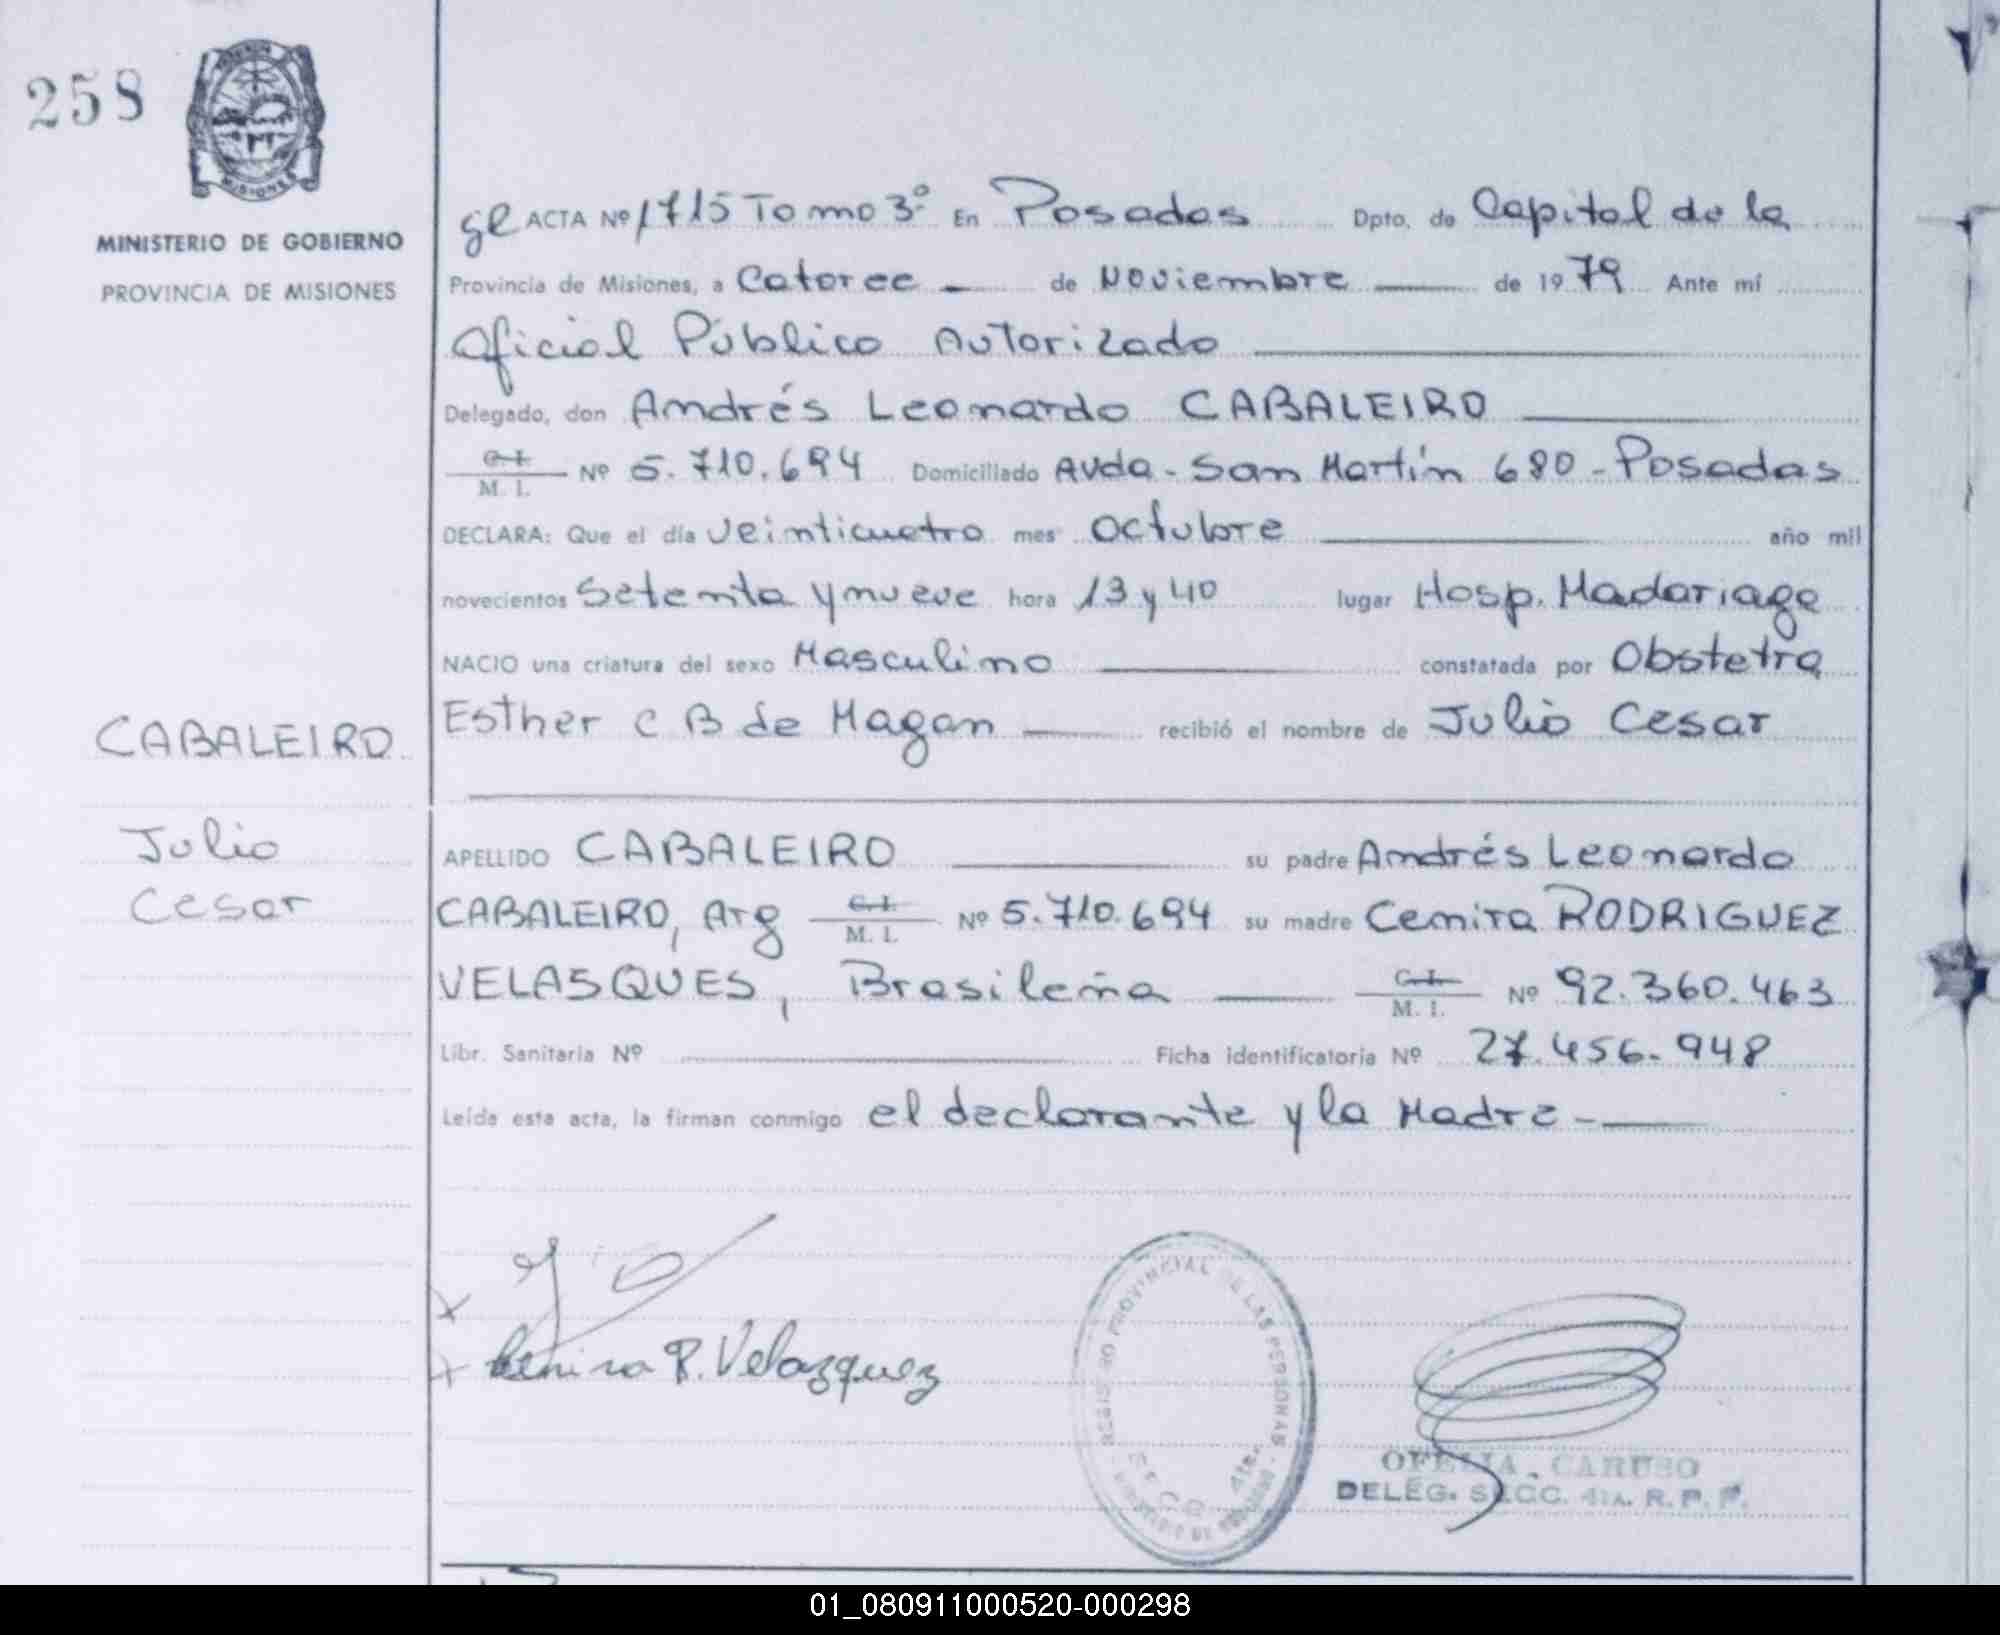 258
MISIONES
MINISTERIO DE GOBIERNO
PROVINCIA DE MISIONES
ACTA Nº 1715 Tomo 3º En Posadas Dpto. de Capital de la
Provincia de Misiones, a Catorce de Noviembre de 1979 Ante mí
Oficial Público Autorizado
Delegado, don Andrés Leonardo CABALEIRO
C.I.
M. I. Nº 5.710.694 Domiciliado Avda. San Martín 680 - Posadas
DECLARA: Que el día Veinticuatro mes Octubre año mil
novecientos Setenta y nueve hora 13 y 40 lugar Hosp. Madariaga
NACIO una criatura del sexo Masculino constatada por Obstetra
Esther C B de Magan recibió el nombre de Julio Cesar
CABALEIRO
Julio
Cesar
APELLIDO CABALEIRO su padre Andrés Leonardo
CABALEIRO, Arg C.I.
M. I. Nº 5.710.694 su madre Cenira RODRIGUEZ
VELASQUES, Brasileña C.I.
M. I. Nº 92.360.463
Libr. Sanitaria Nº Ficha identificatoria Nº 27.456.948
Leída esta acta, la firman conmigo el declarante y la Madre -
Cenira R. Velazquez
REGISTRO PROVINCIAL DE LAS PERSONAS
4ta.
OFELIA CARUSO
DELEG. SECC. 4TA. R. P. P.
01_080911000520-000298